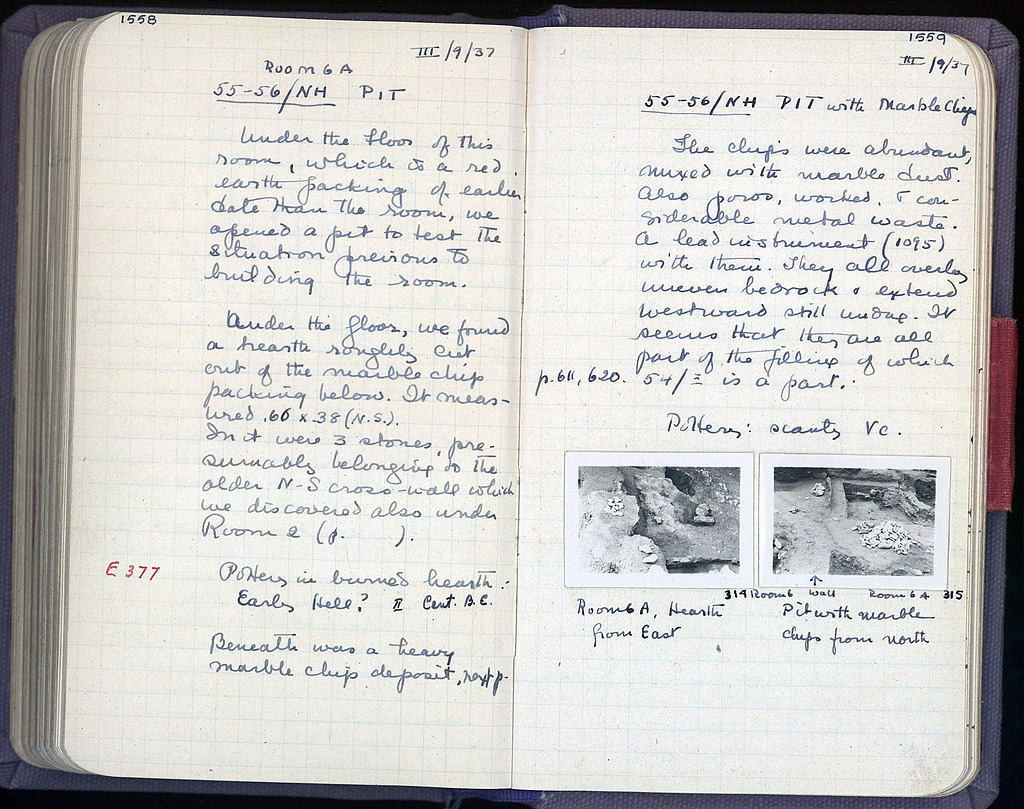 1558
III/9/37
Room 6A
55-56/NH PIT
Under the floor of this
room, which is a red
earth packing of earlier
date than the room, we
opened a pit to test the
situation previous to
building the room.
Under the floor, we found
a hearth roughly cut
out of the marble chip
packing below. It meas-
ured .66 x .38 (N.S.).
In it were 3 stones, pre-
sumably belonging to the
older N-S cross-wall which
we discovered also under
Room 2 (p. ).
E 377
Pottery in burned hearth:
Early Hell? II Cent. B.C.
Beneath was a heavy
marble chip deposit, next p.
1559
III/9/37
55-56/NH PIT with Marble Chips
The chips were abundant,
mixed with marble dust.
Also poros, worked, & con-
siderable metal waste.
A lead instrument (1095)
with them. They all overlay
uneven bedrock & extend
westward still undug. It
seems that they are all
part of the filling of which
p. 611, 620. 54/Ξ is a part.
Pottery: scanty Vc.
314 Room 6 Wall Room 6A 315
Room 6A, Hearth
from East
Pit with marble
chips from north